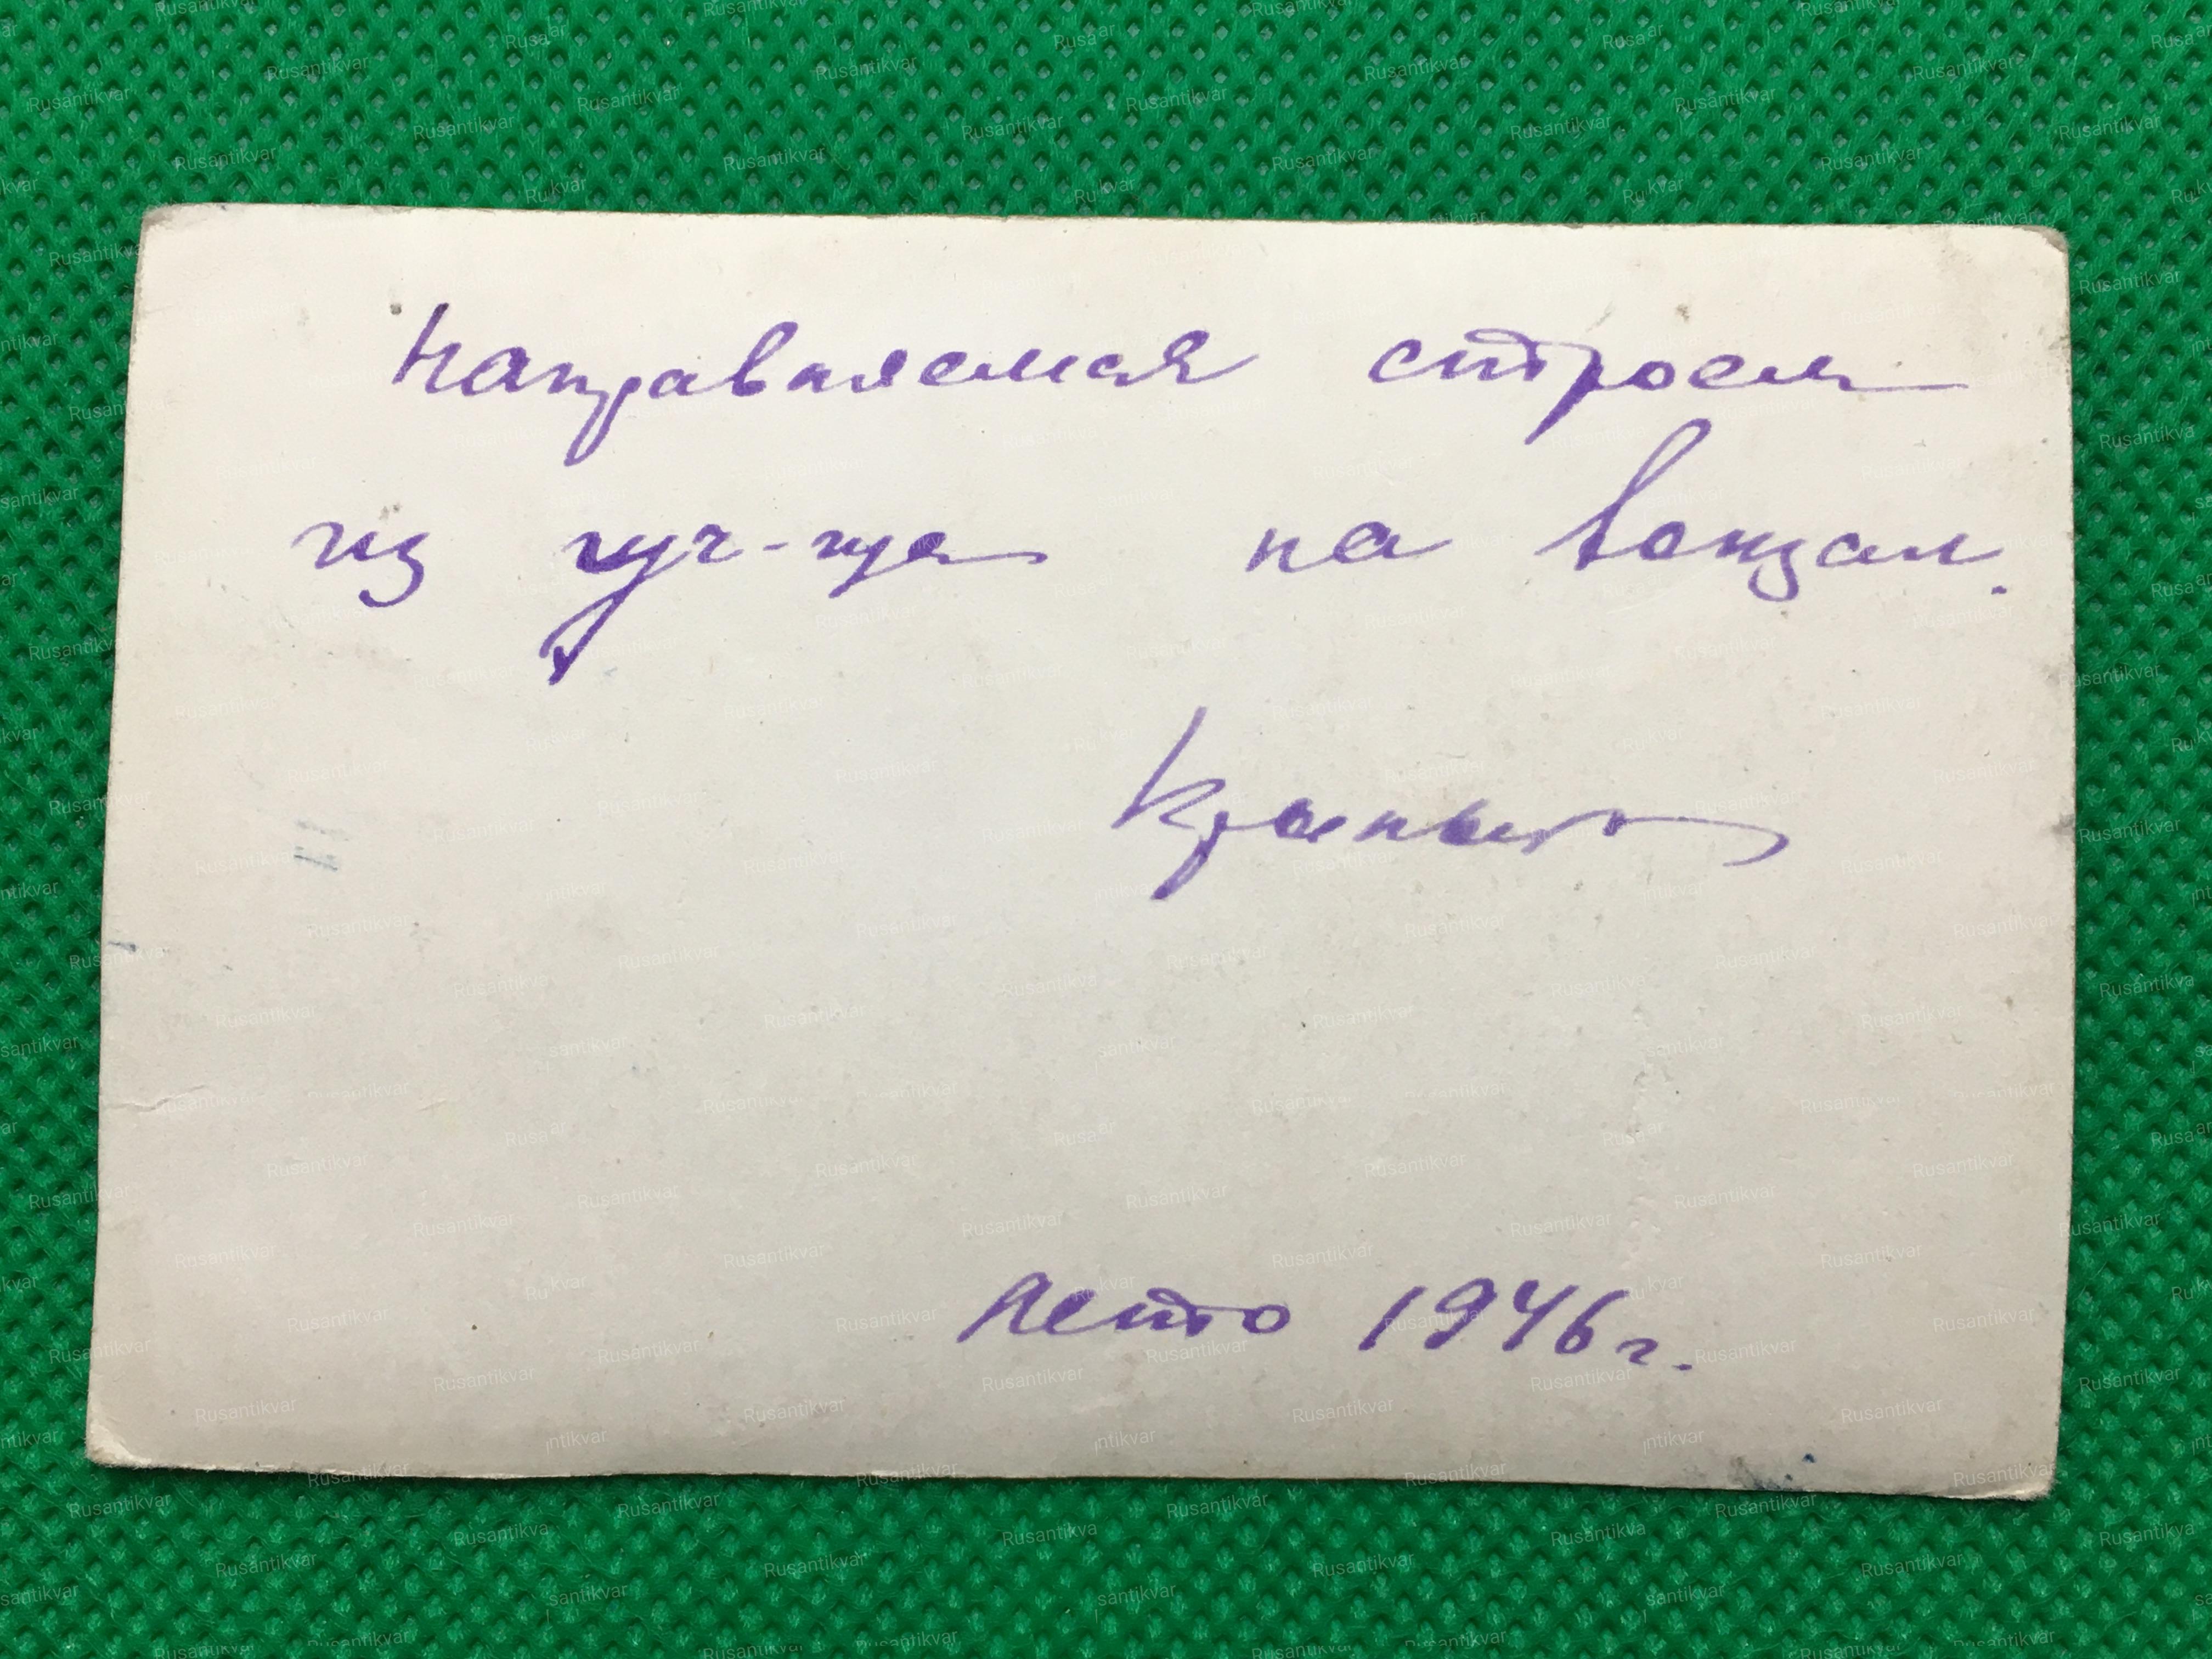 Направляемся строем
из уч-ща на вокзал.
Лето 1946 г.
Rusantikvar